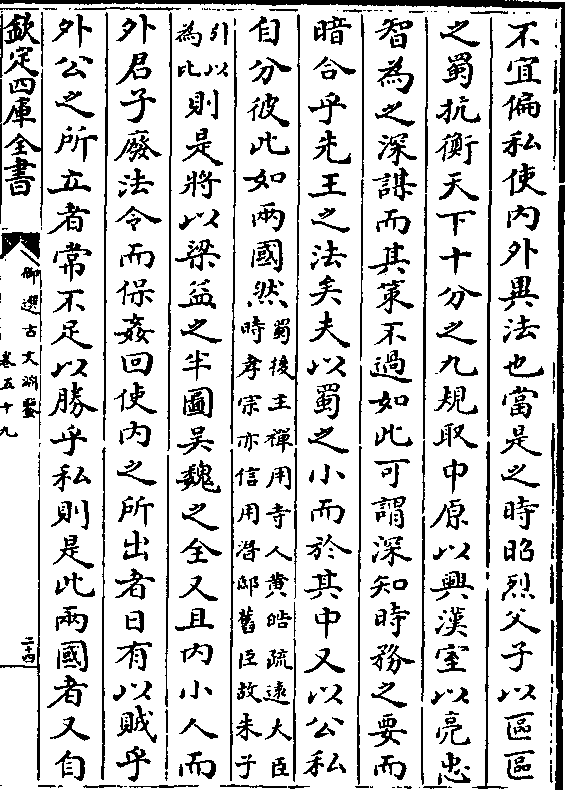 不宜偏私使内外異法也當是之時昭烈父子以區區
之蜀抗衡天下十分之九規取中原以興漢室以亮忠
智為之深謀而其策不過如此可謂深知時務之要而
暗合乎先王之法矣夫以蜀之小而於其中又以公私
自分彼此如兩國然蜀後主禪用寺人黄皓疏遠大臣
時孝宗亦信用潛邸舊臣故朱子
引以
為此則是將以梁益之半圖吳魏之全又且内小人而
外君子廢法令而保姦回使内之所出者日有以賊乎
外公之所立者常不足以勝乎私則是此兩國者又自
欽定四庫全書
御選古文淵鑒
卷五十九
二十四